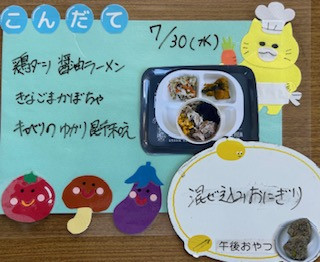 こんだて
7/30(水)
鶏ターン 醤油ラーメン
きなごまかぼちゃ
キャベツのゆかり昆布和え
混ぜ込みおにぎり
午後おやつ